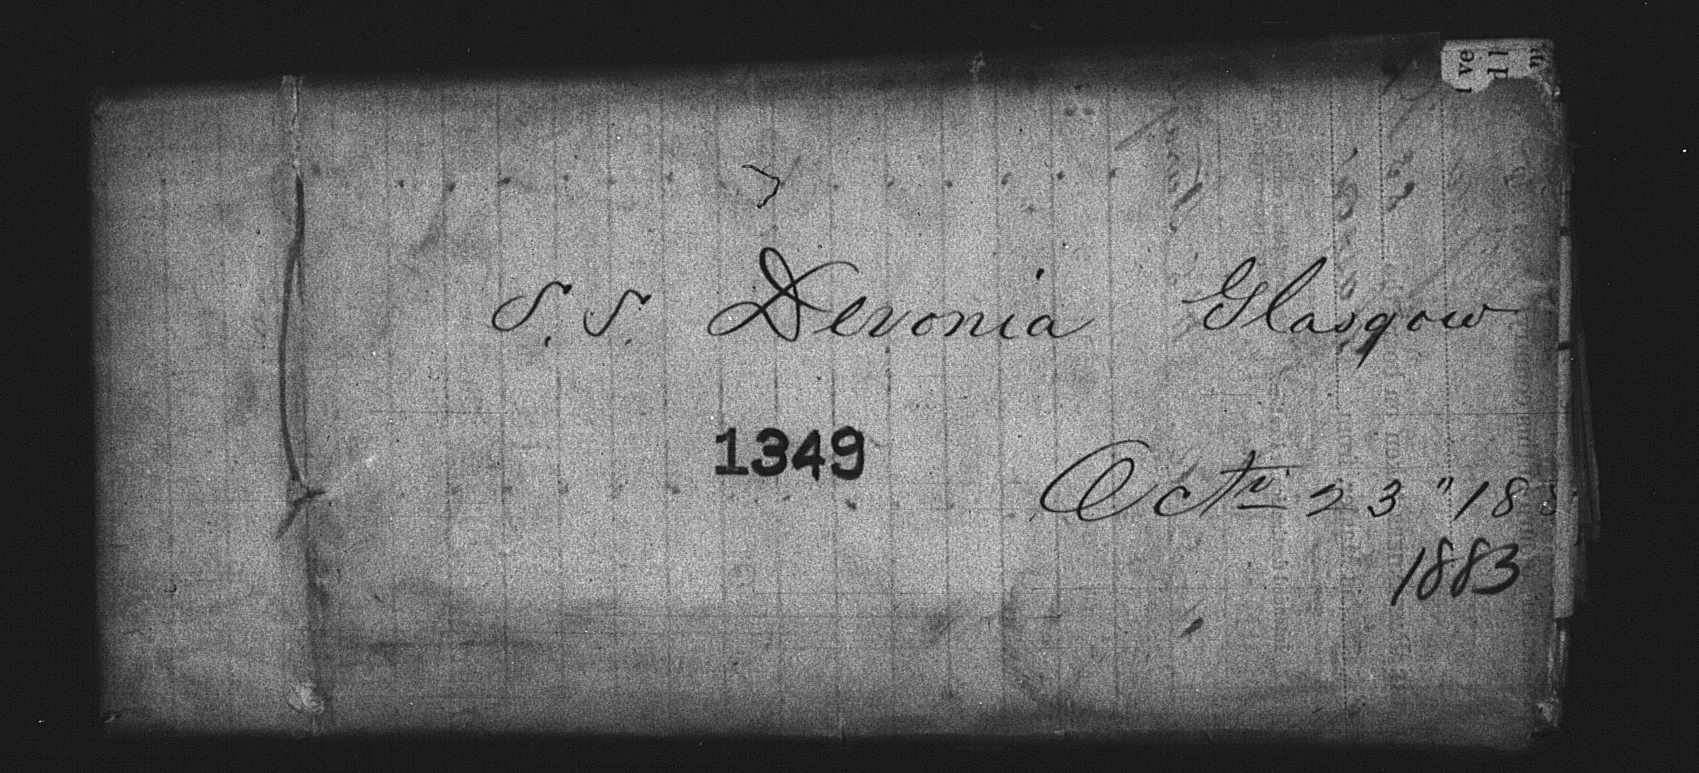 S.S. Devonia Glasgow
1349
Octr 23" 188
1883
ve
d l